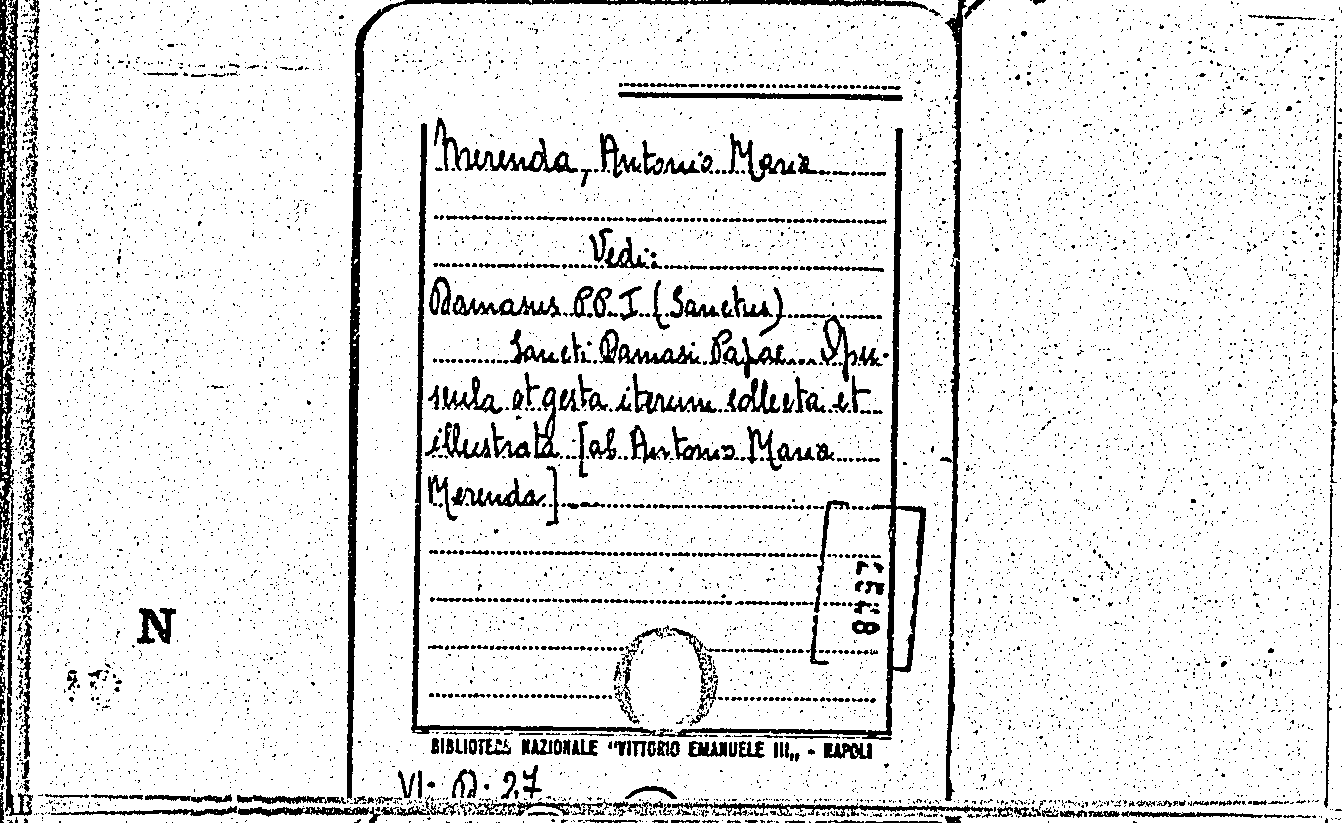 Merenda, Antonio Maria
Vedi:
Damasus PP. I (Sanctus)
Sancti Damasi Papae... Opu-
scula et gesta iterum collecta et
illustrata [ab Antonio Maria
Merenda]
N
BIBLIOTECA NAZIONALE "VITTORIO EMANUELE III„ - NAPOLI